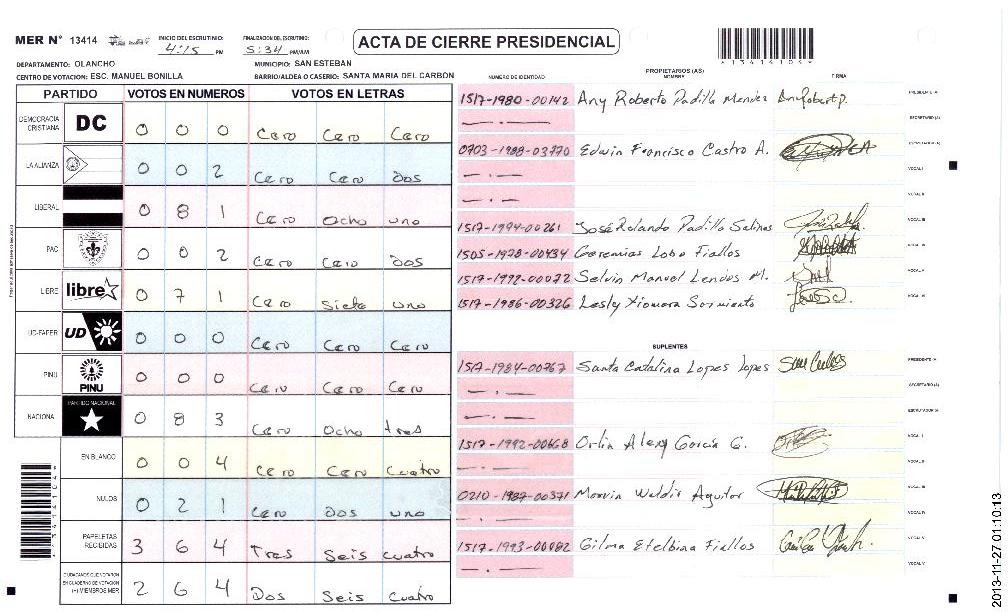 MER N° 13414
INICIO DEL ESCRUTINIO: 4:15 PM
FINALIZACION DEL ESCRUTINIO: 5:34 PM/AM
ACTA DE CIERRE PRESIDENCIAL
DEPARTAMENTO: OLANCHO
MUNICIPIO: SAN ESTEBAN
CENTRO DE VOTACION: ESC. MANUEL BONILLA
BARRIO/ALDEA O CASERIO: SANTA MARIA DEL CARBON
PARTIDO VOTOS EN NUMEROS VOTOS EN LETRAS
DEMOCRACIA CRISTIANA DC 0 0 0 Cero Cero Cero
LA ALIANZA 0 0 2 Cero Cero dos
LIBERAL 0 8 1 Cero Ocho uno
PAC 0 0 2 Cero Cero dos
LIBRE libre 0 7 1 Cero Siete uno
UD-FAPER UD 0 0 0 Cero Cero Cero
PINU PINU 0 0 0 Cero Cero Cero
NACIONAL PARTIDO NACIONAL 0 8 3 Cero Ocho tres
EN BLANCO 0 0 4 Cero Cero Cuatro
NULOS 0 2 1 Cero dos uno
PAPELETAS RECIBIDAS 3 6 4 Tres Seis cuatro
CIUDADANOS QUE VOTARON EN CUADERNO DE VOTACION (+) MIEMBROS MER 2 6 4 Dos Seis Cuatro
NUMERO DE IDENTIDAD
PROPIETARIOS (AS)
NOMBRE
FIRMA
1517-1980-00142 Any Roberto Padilla Mendez PRESIDENTE (A)
SECRETARIO (A)
0703-1988-03770 Edwin Francisco Castro A. ESCRUTADOR (A)
VOCAL I
VOCAL II
1517-1994-00261 José Rolando Padilla Salinas VOCAL III
1505-1978-00434 Geremias Lobo Fiallos VOCAL IV
1517-1992-00072 Selvin Manuel M. VOCAL V
1517-1986-00326 Lesly Xiomara Sarmiento VOCAL VI
SUPLENTES
1517-1984-00767 Santa Catalina Lopes lopes PRESIDENTE (A)
SECRETARIO (A)
ESCRUTADOR (A)
1517-1992-00668 Orlin Alexy García G. VOCAL I
VOCAL II
0210-1987-00371 Marvin Waldir Aguilar VOCAL III
VOCAL IV
1517-1993-00082 Gilma Etelbina Fiallos VOCAL V
VOCAL V
2013-11-27 01:10:13